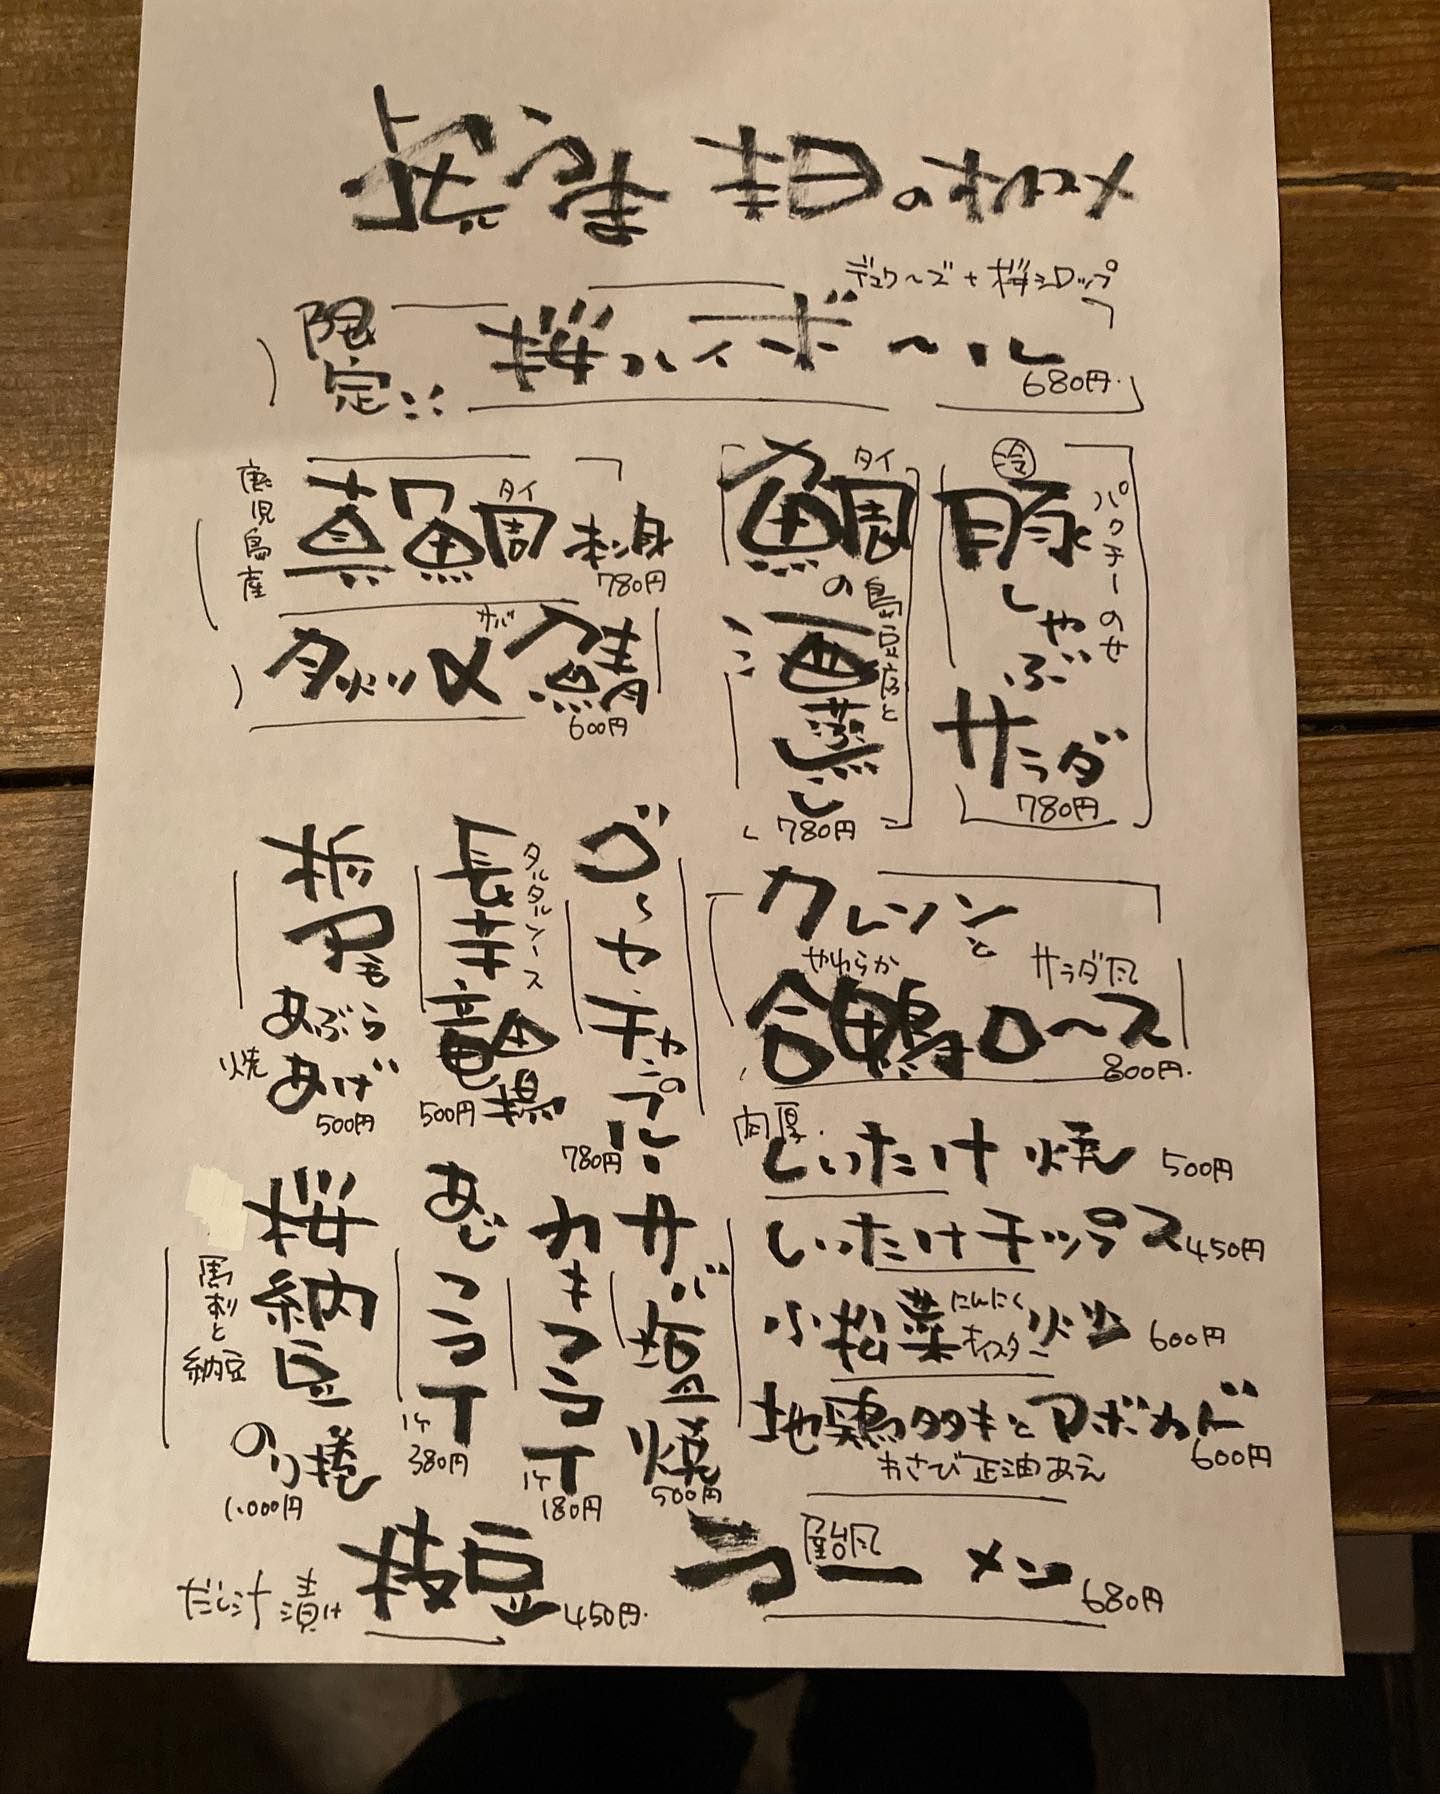 本日のオススメ
デュワーズ+桜シロップ
限定 桜ハイボール
680円
鹿児島産
真鯛 タイ 刺身
780円
〆サバ鯖
600円
鯛の酒蒸し
タイ
島豆腐と
780円
冷
豚しゃぶサラダ
パクチーのせ
780円
栃尾もあぶらあげ
焼
500円
長芋竜田揚
タルタルソース
500円
ゴーヤチャンプルー
780円
クレソンと
やわらか サラダ風
合鴨ロース
800円
肉厚 しいたけ焼 500円
しいたけチップス 450円
小松菜 にんにく オイスター 炒 600円
地鶏タタキとアボカド
わさび正油あえ 600円
桜納豆のり捲
馬刺と納豆
1,000円
あじフライ
1ケ
380円
カキフライ
1ケ
180円
サバ塩焼
500円
だし汁漬け 枝豆 450円
屋台風 ラーメン 680円